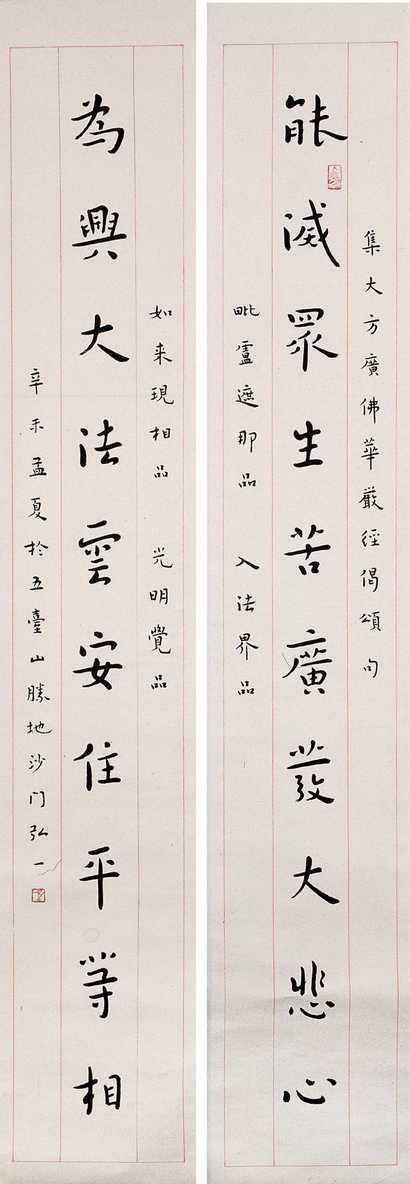 集大方廣佛華嚴經偈頌句
能滅眾生苦廣發大悲心
毗盧遮那品 入法界品
如來現相品 光明覺品
為興大法雲安住平等相
辛未孟夏於五臺山勝地沙门弘一